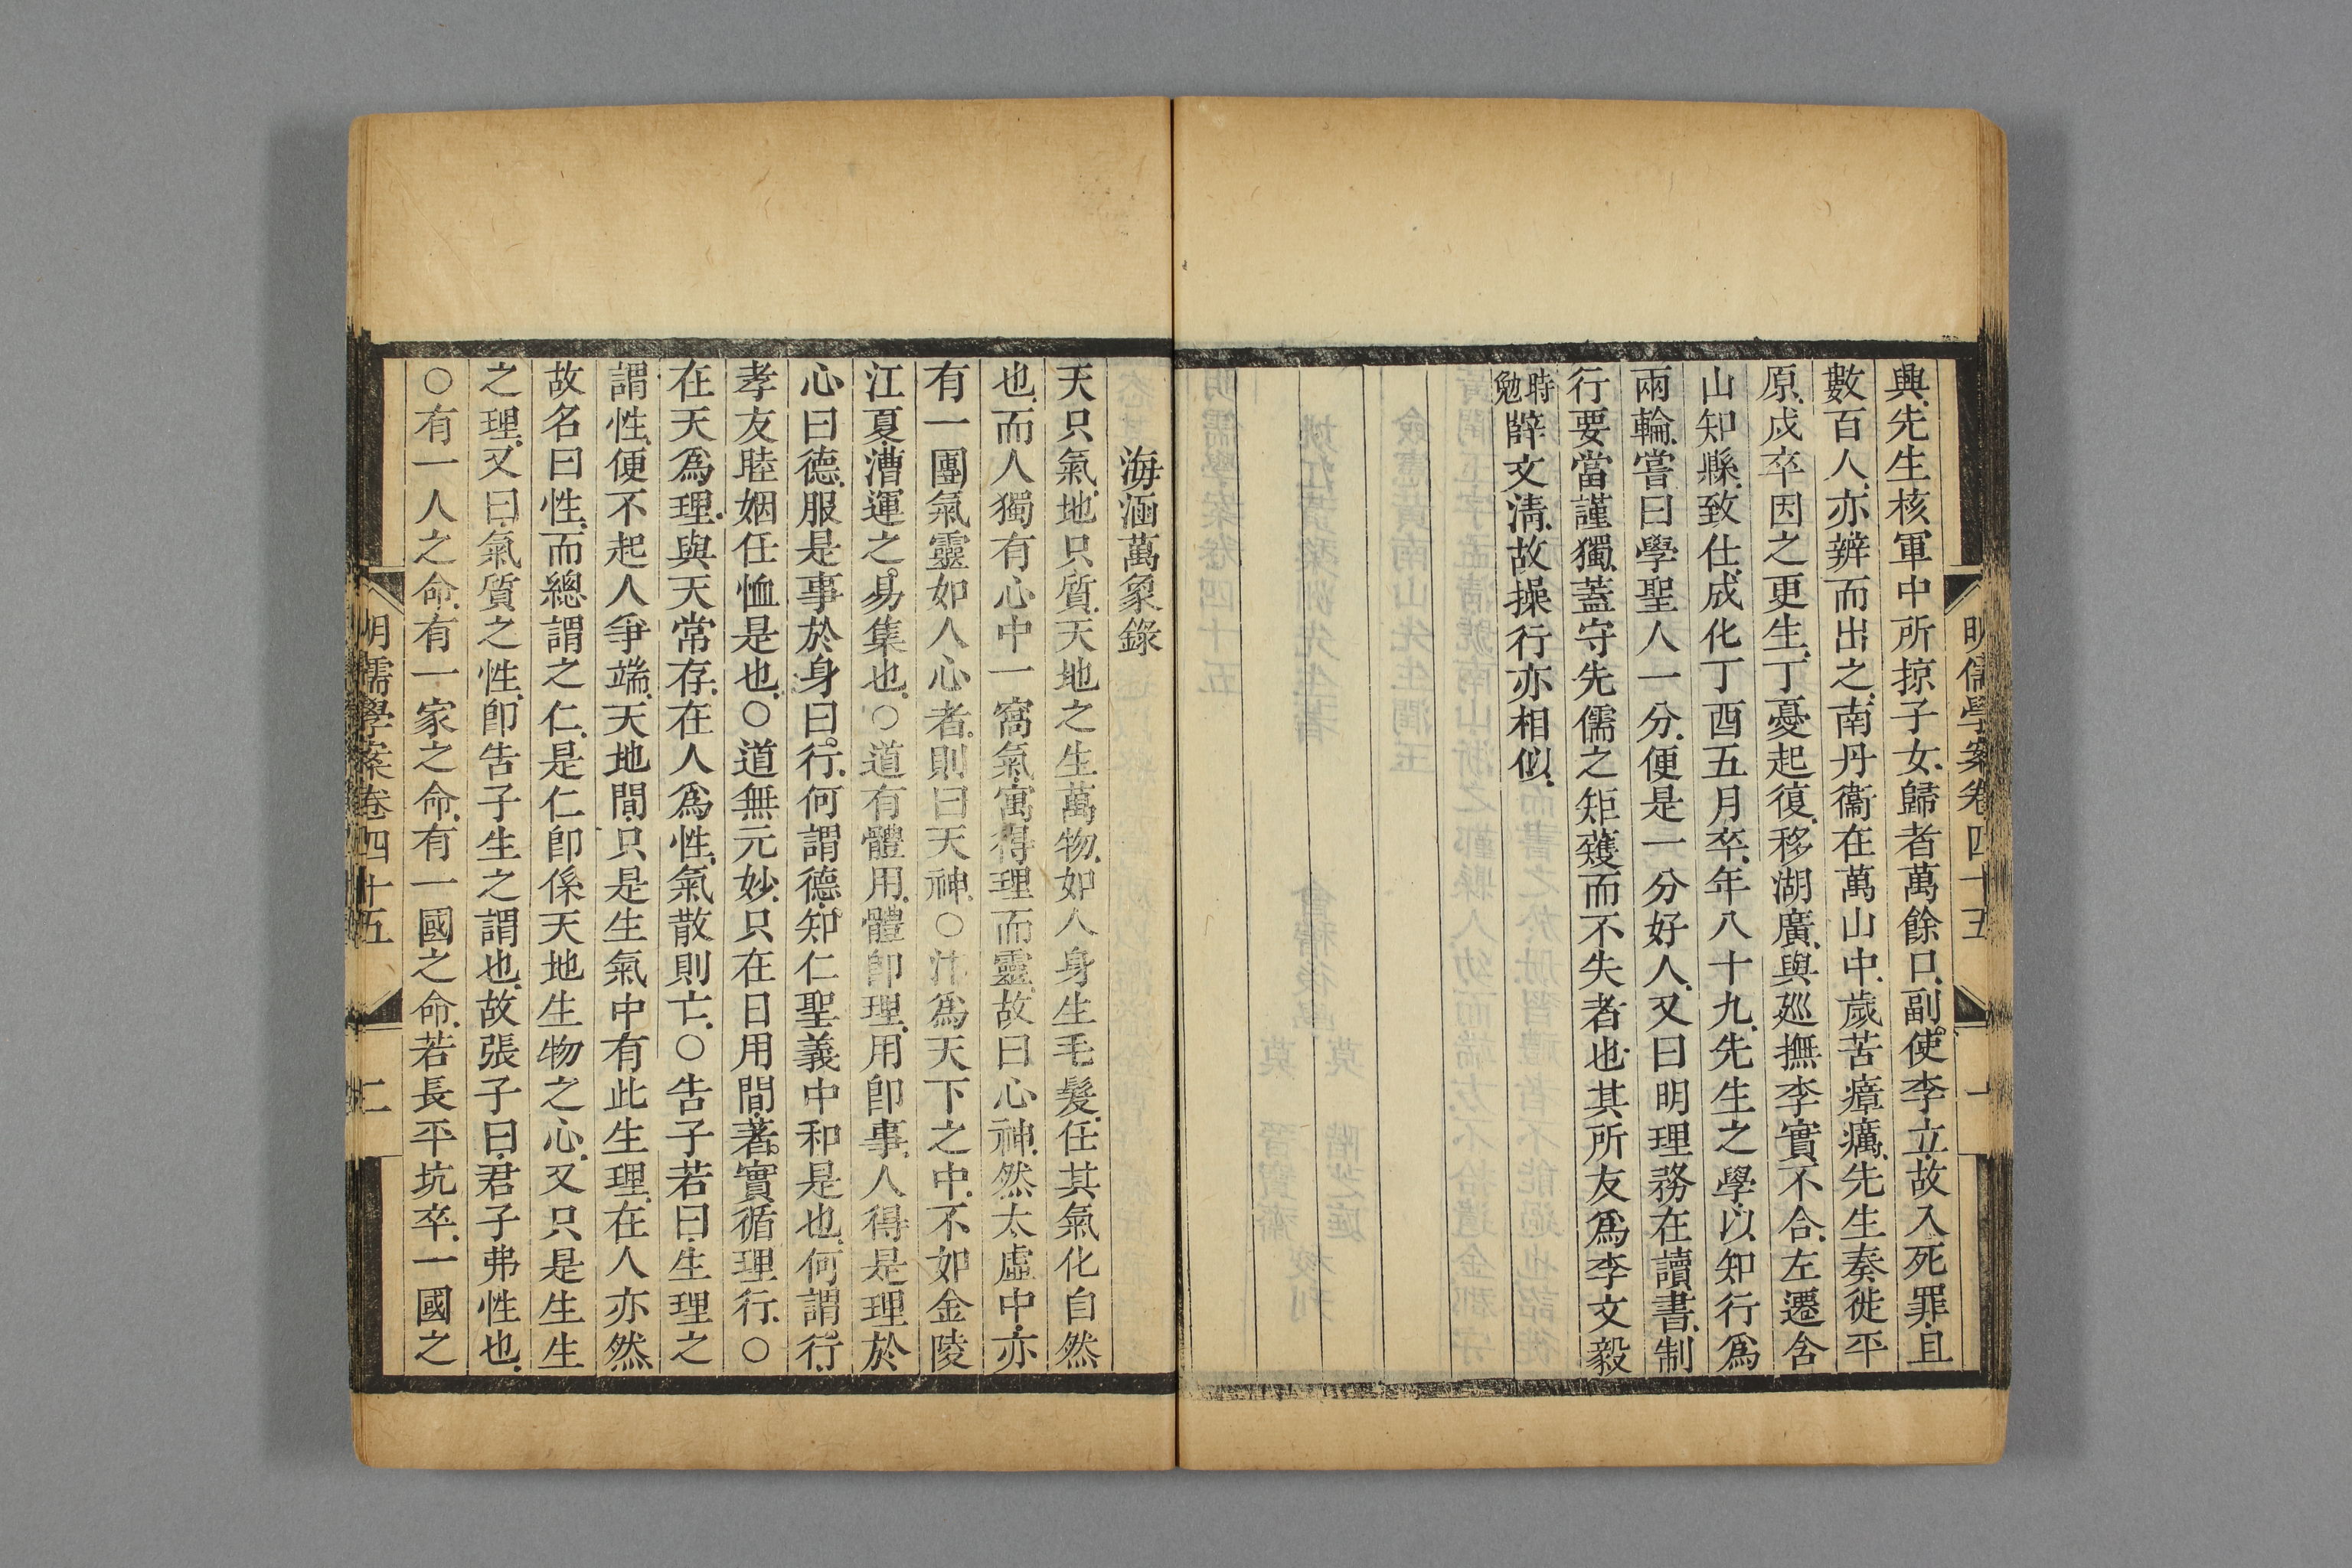 明儒學案卷四十五 一
興先生核軍中所掠子女歸者萬餘口副使李立故入死罪且
數百人亦辨而出之南丹衞在萬山中歲苦瘴癘先生奏徙平
原戍卒因之更生丁憂起復移湖廣與廵撫李實不合左遷含
山知縣致仕成化丁酉五月卒年八十九先生之學以知行爲
兩輪嘗曰學聖人一分便是一分好人又曰明理務在讀書制
行要當謹獨蓋守先儒之矩矱而不失者也其所友爲李文毅
時勉薛文淸故操行亦相似
海涵萬象錄
天只氣地只質天地之生萬物如人身生毛髮任其氣化自然
也而人獨有心中一窩氣寓得理而靈故曰心神然太虛中亦
有一團氣靈如人心者則曰天神○汴爲天下之中不如金陵
江夏漕運之易集也○道有體用體卽理用卽事人得是理於
心曰德服是事於身曰行何謂德知仁聖義中和是也何謂行
孝友睦姻任恤是也○道無元妙只在日用間著實循理行○
在天爲理與天常存在人爲性氣散則亡○告子若曰生理之
謂性便不起人爭端天地間只是生氣中有此生理在人亦然
故名曰性而總謂之仁是仁卽係天地生物之心又只是生生
之理又曰氣質之性卽告子生之謂也故張子曰君子弗性也
○有一人之命有一家之命有一國之命若長平坑卒一國之
明儒學案卷四十五 二